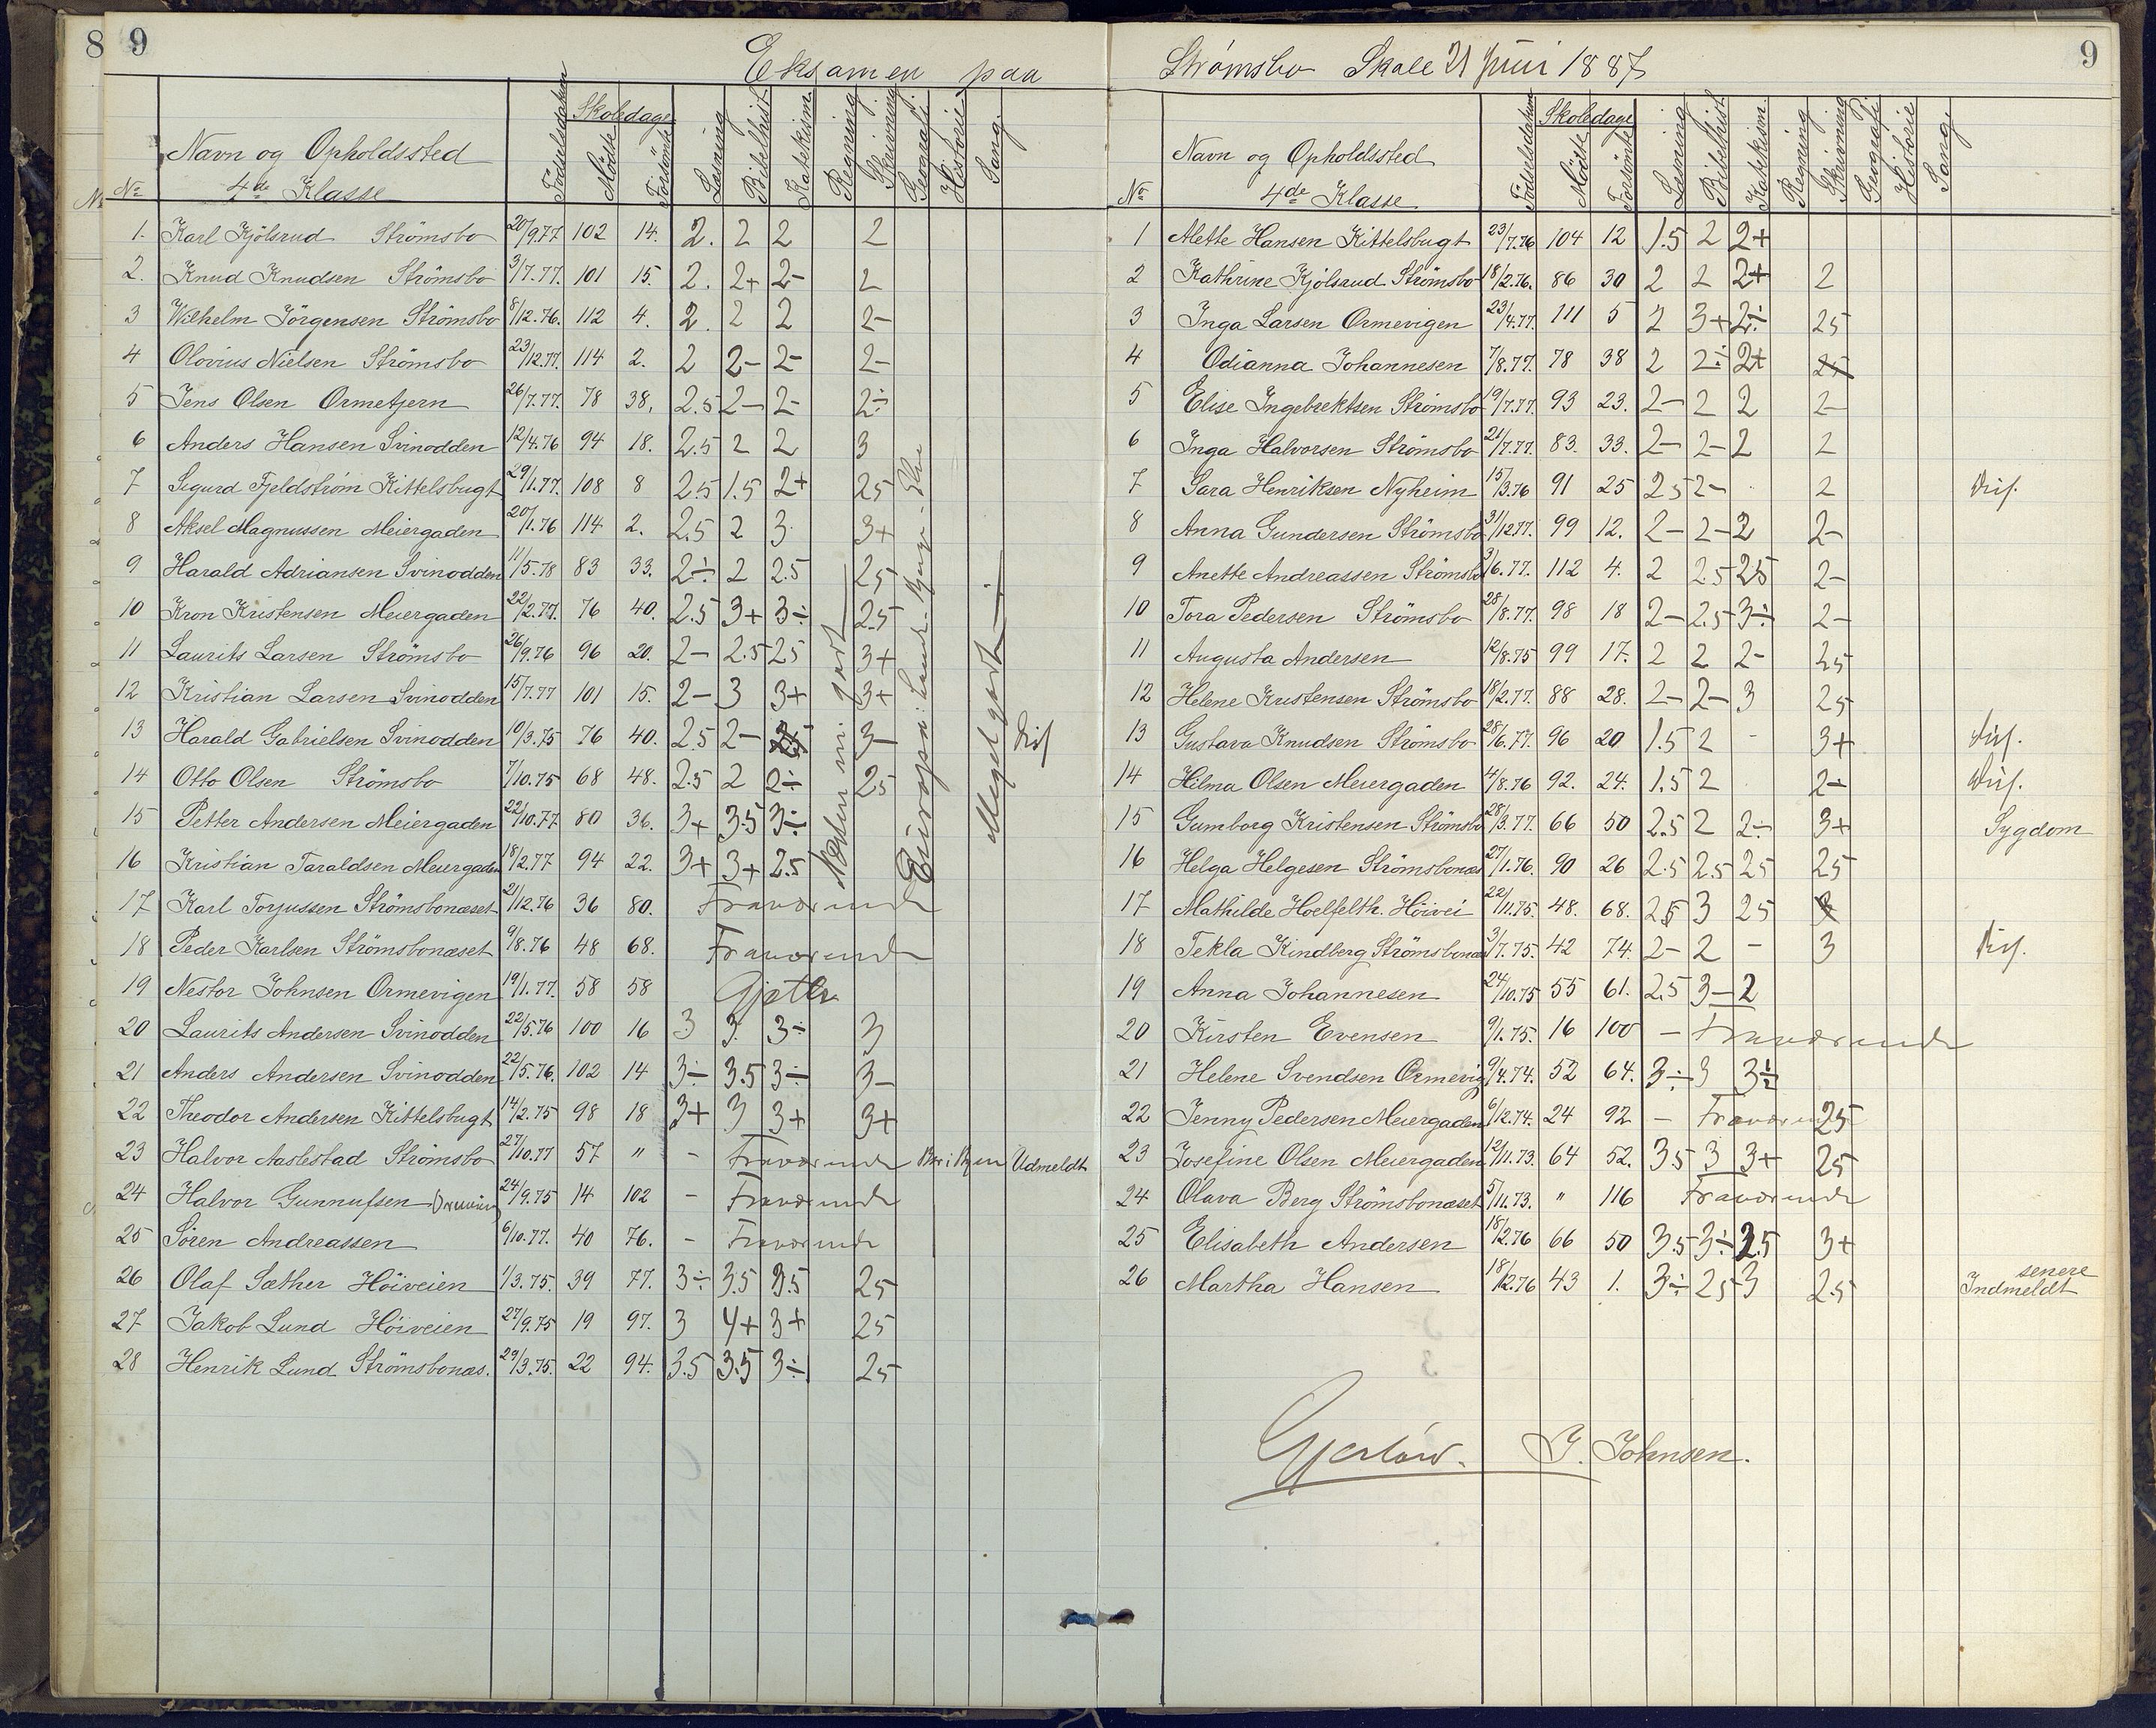 8 9
Eksamen paa
Skoledage
Navn og Opholdssted Födselsdatum Mödte Forsömte Læsning Bibelhist Katekism. Regning Skrivning Geografi Historie Sang.
No 4de Klasse
1. Karl Kjölsrud Strömsbo 20/9.77 102 14. 2. 2 2 2
2. Knud Knudsen Strömsbo 3/7.77. 101 15. 2. 2+ 2- 2
3 Wilhelm Jörgensen Strömsbo 8/12.76. 112 4. 2. 2 2 2-
4 Olovius Nielsen Strömsbo 23/12.77. 114 2. 2 2- 2- 2-
5 Jens Olsen Ormetjern 26/7.77. 78 38. 2.5 2- 2- 2÷
6 Anders Hansen Svinodden 12/4.76 94 18. 2.5 2 2 3
7 Sigurd Fjeldström Kittelsbugt 29/1.77. 108 8 2.5 1.5 2+ 25
8 Aksel Magnussen Meiergaden 20/1.76 114 2. 2.5 2 3 3+
9 Harald Adriansen Svinodden 11/5.78 83 33. 2÷ 2 2.5 25
10 Kron Kristensen Meiergaden 22/2.77. 76 40. 2.5 3+ 3÷ 2.5
11 Laurits Larsen Strömsbo 26/9.76 96 20. 2- 2.5 25 3+
12 Kristian Larsen Svinodden 15/7.77 101 15. 2- 3 3+ 3+
13 Harald Gabrielsen Svinodden 10/3.75 76 40. 2.5 2- 3-
14 Otto Olsen Strömsbo 7/10.75 68 48. 2.5 2 2÷ 25
15 Petter Andersen Meiergaden 22/10.77 80 36. 3+ 3.5 3÷
16 Kristian Taraldsen Meiergaden 18/2.77 94 22. 3+ 3+ 2.5
17 Karl Torjussen Strömsbonæset 21/12.76 36 80. Fraværende
18 Peder Karlsen Strömsbonæset 9/8.76 48 68. Fraværende
19 Nestor Johnsen Ormevigen 19/1.77. 58 58
20 Laurits Andersen Svinodden 22/5.76 100 16 3 3. 3÷ 3
21 Anders Andersen Svinodden 22/5.76. 102 14 3÷ 3.5 3÷ 3-
22 Theodor Andersen Kittelsbugt 14/2.75 98 18 3+ 3 3+ 3+
23 Halvor Aaslestad Strömsbo 27/10.77 57 " - Fraværende Udmeldt
24 Halvor Gunnufsen 24/9.75 14 102 - Fraværende
25 Sören Andreassen 6/10.77. 40 76. - Fraværende
26 Olaf Sæther Höiveien 1/3.75. 39 77. 3÷ 3.5 3.5 25
27 Jakob Lund Höiveien 27/9.75 19 97. 3 4+ 3+ 25
28 Henrik Lund Strömsbonæs. 29/3.75. 22 94. 3.5 3.5 3÷ 25
Meget godt
9
Strømsbo Skole 21 Juni 1887
Skoledage
Navn og Opholdssted Födselsdatum Mödte Forsömte Læsning Bibelhist Katekism. Regning Skrivning Geografi Historie Sang.
No 4de Klasse
1 Alette Hansen Kittelsbugt 23/7.76 104 12 1.5 2 2+
2 Kathrine Kjölsrud Strömsbo 18/2.76. 86 30 2 2 2+ 2
3 Inga Larsen Ormevigen 23/4.77. 111 5 2 3+ 2÷ 25
4 Odianna Johannesen 7/8.77. 78 38 2 2÷ 2+ 25
5 Elise Ingebrektsen Strömsbo 19/7.77. 93 23. 2- 2 2 2-
6 Inga Halvorsen Strömsbo 21/7.77. 83. 33. 2- 2- 2 2
7 Sara Henriksen Nyheim 15/3.76 91 25 25 2- 2
8 Anna Gundersen Strömsbo 31/12.77. 99 12. 2- 2- 2 2-
9 Anette Andreassen Strömsbo 3/6.77. 112 4. 2 2.5 25 2-
10 Tora Pedersen Strömsbo 28/8.77. 98 18 2- 2.5 3÷ 2-
11 Augusta Andersen 12/8.75 99 17. 2 2 2- 25
12 Helene Kristensen Strömsbo 18/2.77. 88 28. 2- 2- 3 25
13 Gustava Knudsen Strömsbo 28/6.77. 96 20 1.5 2 - 3+
14 Hilma Olsen Meiergaden 4/8.76 92. 24. 1.5 2 2÷
15 Gumborg Kristensen Strömsbo 28/3.77. 66 50 2.5 2 2÷ 3+ Sygdom
16 Helga Helgesen Strömsbonæs 27/1.76. 90 26 2.5 2.5 25 25
17 Mathilde Hoelfelth. Höivei 22/11.75. 48. 68. 25 3 25 3
18 Tekla Kindberg Strömsbonæs 3/7.75. 42 74. 2- 2 - 3
19 Anna Johannesen 24/10.75 55 61. 2.5 3- 2
20 Kirsten Evensen 9/1.75. 16 100 - Fraværende
21 Helene Svendsen Ormevig 9/4.74. 52 64. 3÷ 3 3÷
22 Jenny Pedersen Meiergaden 6/12.74. 24 92 - Fraværende 25
23 Josefine Olsen Meiergaden 12/11.73. 64 52. 3.5 3 3+ 25
24 Olava Berg Strömsbonæset 5/11.73. " 116 Fraværende
25 Elisabeth Andersen 18/2.76 66 50 3.5 3÷ 2.5 3+
26 Martha Hansen 18/12.76 43 1. 3÷ 25 3 2.5 senere Indmeldt
J. Johnsen.